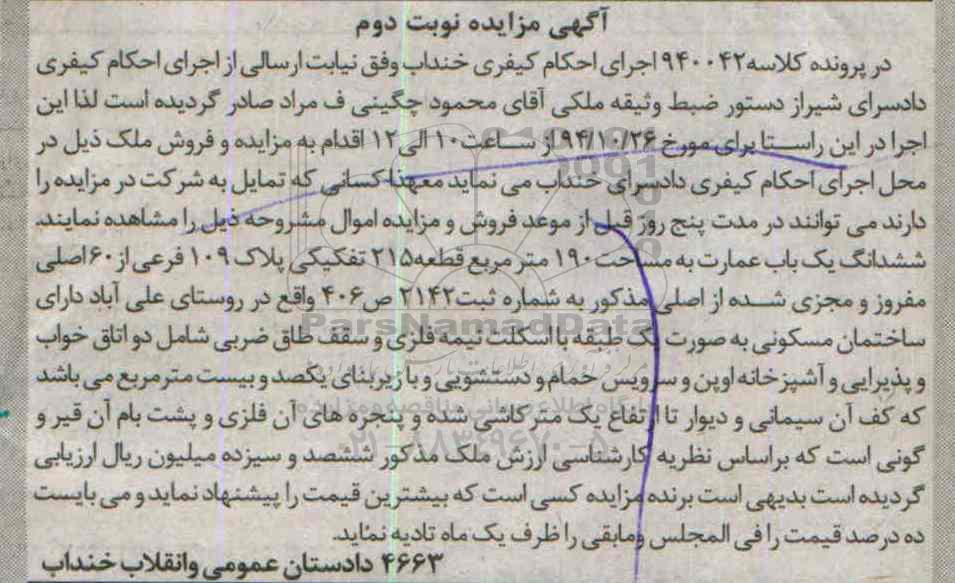 آگهی مزایده نوبت دوم
در پرونده کلاسه ۹۴۰۰۴۲ اجرای احکام کیفری خنداب وفق نیابت ارسالی از اجرای احکام کیفری
دادسرای شیراز دستور ضبط وثیقه ملکی آقای محمود چگینی ف مراد صادر گردیده است لذا این
اجرا در این راستا برای مورخ ۹۴/۱۰/۲۶ از ساعت ۱۰ الی ۱۲ اقدام به مزایده و فروش ملک ذیل در
محل اجرای احکام کیفری دادسرای خنداب می نماید معهذا کسانی که تمایل به شرکت در مزایده را
دارند می توانند در مدت پنج روز قبل از موعد فروش و مزایده اموال مشروحه ذیل را مشاهده نمایند.
ششدانگ یک باب عمارت به مساحت ۱۹۰ متر مربع قطعه ۲۱۵ تفکیکی پلاک ۱۰۹ فرعی از ۶۰ اصلی
مفروز و مجزی شده از اصلی مذکور به شماره ثبت ۲۱۴۲ ص ۴۰۶ واقع در روستای علی آباد دارای
ParsNamadData
ساختمان مسکونی به صورت یک طبقه با اسکلت نیمه فلزی و سقف طاق ضربی شامل دو اتاق خواب
و پذیرایی و آشپزخانه اوپن و سرویس حمام و دستشویی و با زیربنای یکصد و بیست متر مربع می باشد
که کف آن سیمانی و دیوار تا ارتفاع یک متر کاشی شده و پنجره های آن فلزی و پشت بام آن قیر و
۰۲۱-۸۸۳۴۹۶۷۰-۵
گونی است که براساس نظریه کارشناسی ارزش ملک مذکور ششصد و سیزده میلیون ریال ارزیابی
گردیده است بدیهی است برنده مزایده کسی است که بیشترین قیمت را پیشنهاد نماید و می بایست
ده درصد قیمت را فی المجلس ومابقی را ظرف یک ماه تادیه نماید.
۴۶۶۳ دادستان عمومی وانقلاب خنداب